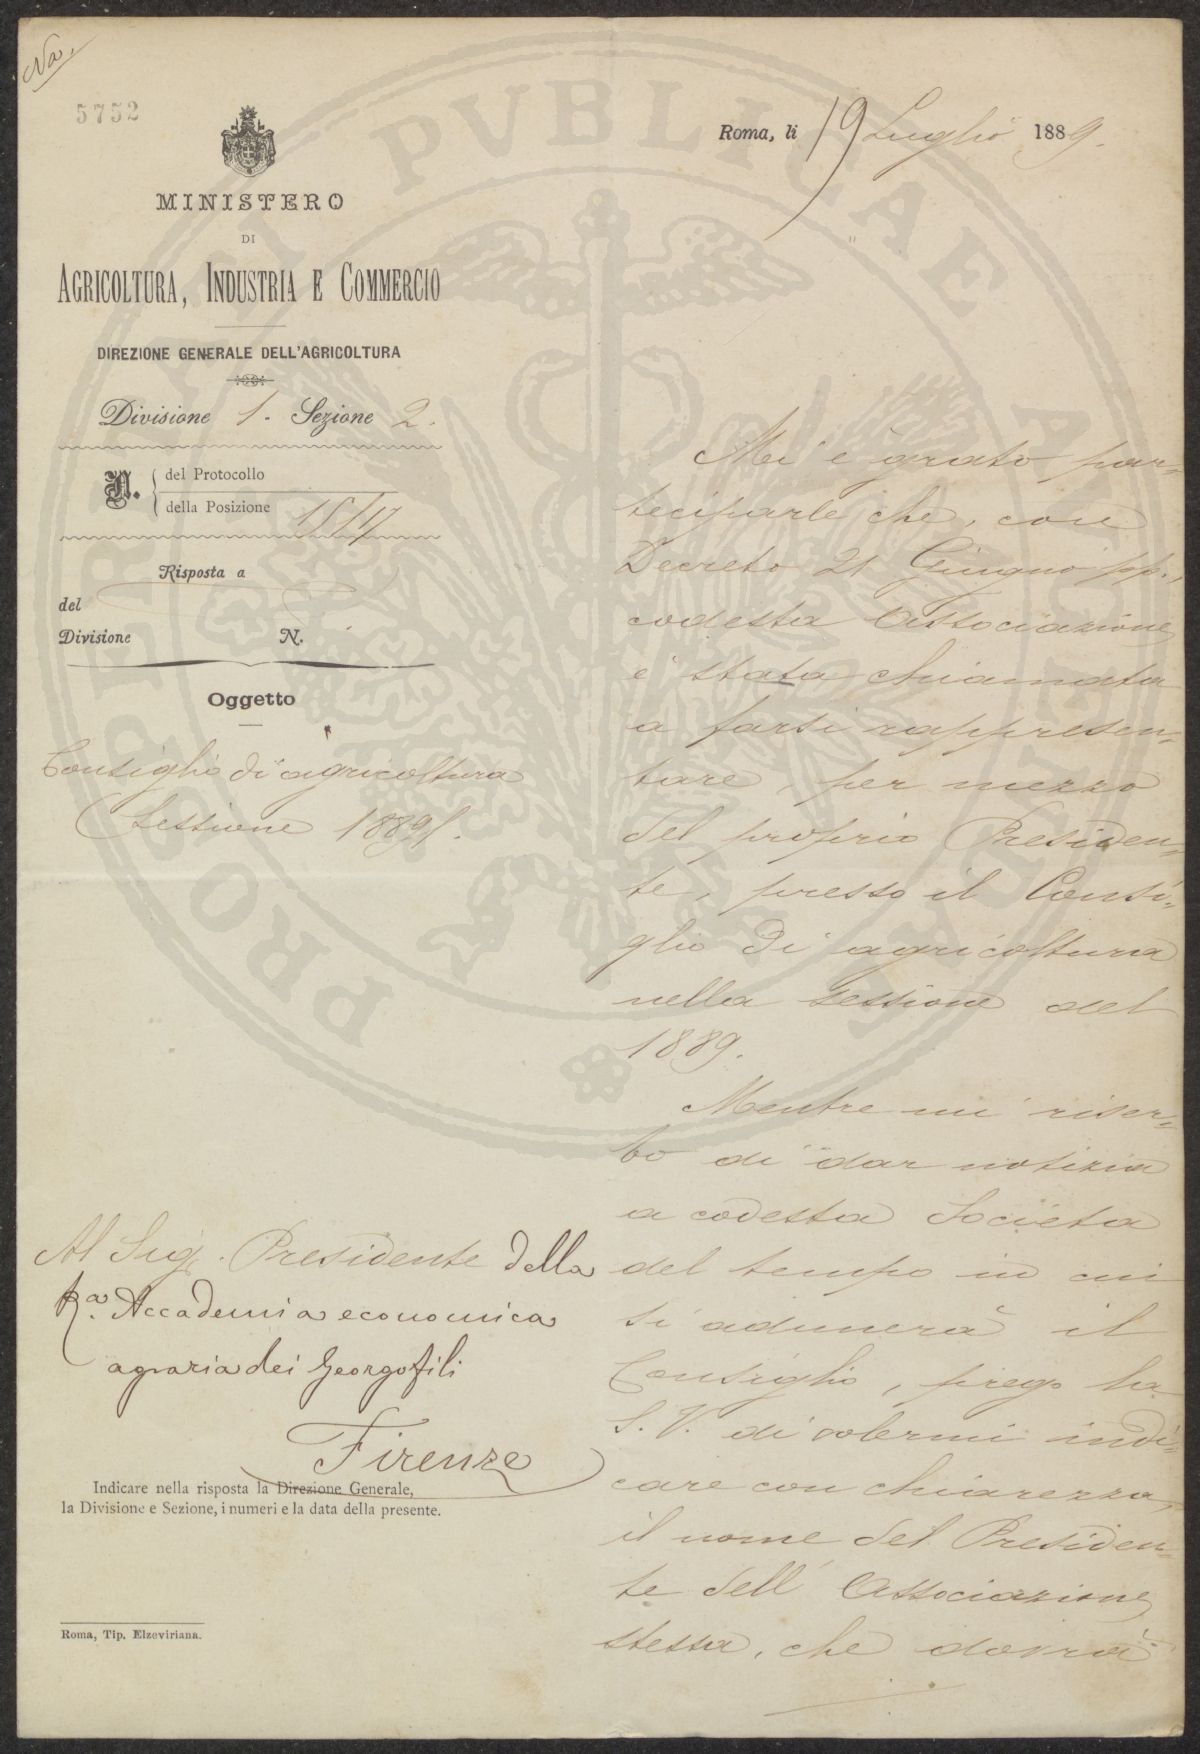 Na.
5752
MINISTERO
DI
AGRICOLTURA, INDUSTRIA E COMMERCIO
DIREZIONE GENERALE DELL'AGRICOLTURA
Divisione 1. Sezione 2.
N. del Protocollo
della Posizione 15/17
Risposta a
del
Divisione N.
Oggetto
Consiglio di agricoltura
Sessione 1889.
Al Sig. Presidente della
Ra. Accademia economica
agraria dei Georgofili
Firenze
Indicare nella risposta la Direzione Generale,
la Divisione e Sezione, i numeri e la data della presente.
Roma, Tip. Elzeviriana.
Roma, li 19 Luglio 1889.
Mi è grato par-
teciparle che, con
Decreto 21 Giugno pp.,
codesta Associazione
è stata chiamata
a farsi rappresen-
tare, per mezzo
del proprio Presiden-
te, presso il Consi-
glio di agricoltura
nella sessione del
1889.
Mentre mi riser-
bo di dar notizia
a codesta Società
del tempo in cui
si adunerà il
Consiglio, prego la
S. V. di volermi indi-
care con chiarezza,
il nome del Presiden-
te dell'Associazione
stessa, che dovrà
PROSPERITATI PVBLICAE AVGENDAE